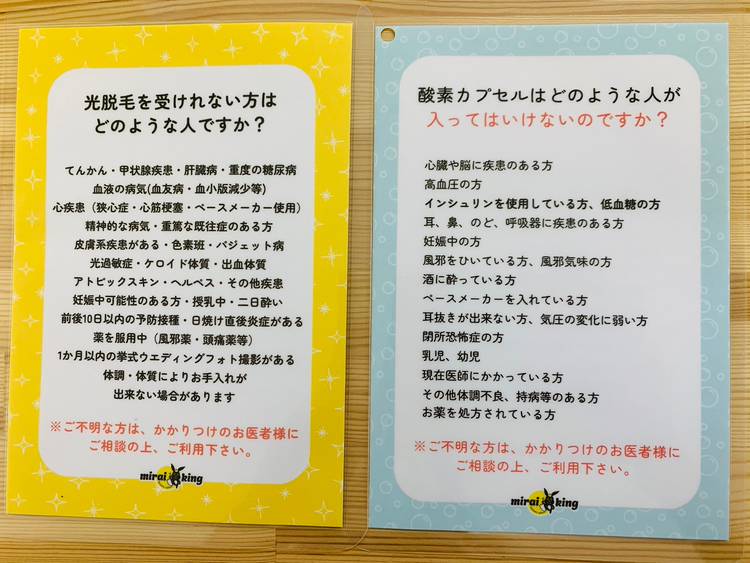 光脱毛を受けれない方は
どのような人ですか？
てんかん・甲状腺疾患・肝臓病・重度の糖尿病
血液の病気(血友病・血小版減少等)
心疾患（狭心症・心筋梗塞・ペースメーカー使用）
精神的な病気・重篤な既往症のある方
皮膚系疾患がある・色素斑・パジェット病
光過敏症・ケロイド体質・出血体質
アトピックスキン・ヘルペス・その他疾患
妊娠中可能性のある方・授乳中・二日酔い
前後10日以内の予防接種・日焼け直後炎症がある
薬を服用中（風邪薬・頭痛薬等）
1か月以内の挙式ウエディングフォト撮影がある
体調・体質によりお手入れが
出来ない場合があります
※ご不明な方は、かかりつけのお医者様に
ご相談の上、ご利用下さい。
mirai king
酸素カプセルはどのような人が
入ってはいけないのですか？
心臓や脳に疾患のある方
高血圧の方
インシュリンを使用している方、低血糖の方
耳、鼻、のど、呼吸器に疾患のある方
妊娠中の方
風邪をひいている方、風邪気味の方
酒に酔っている方
ペースメーカーを入れている方
耳抜きが出来ない方、気圧の変化に弱い方
閉所恐怖症の方
乳児、幼児
現在医師にかかっている方
その他体調不良、持病等のある方
お薬を処方されている方
※ご不明な方は、かかりつけのお医者様に
ご相談の上、ご利用下さい。
mirai king